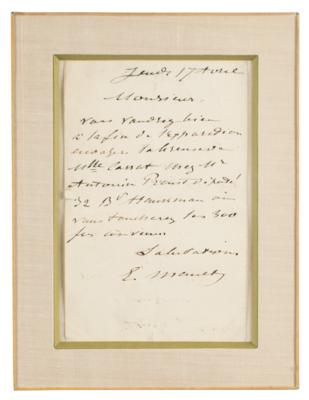 Jeudi 17 Avril
Monsieur,
vous voudrez bien
à la fin de l'exposition
envoyer
Mlle Cassat chez Mr
Antonin Proust Député
32 Bd Haussman où
vous toucherez les 300
frs convenus
Salutations
E. Manet